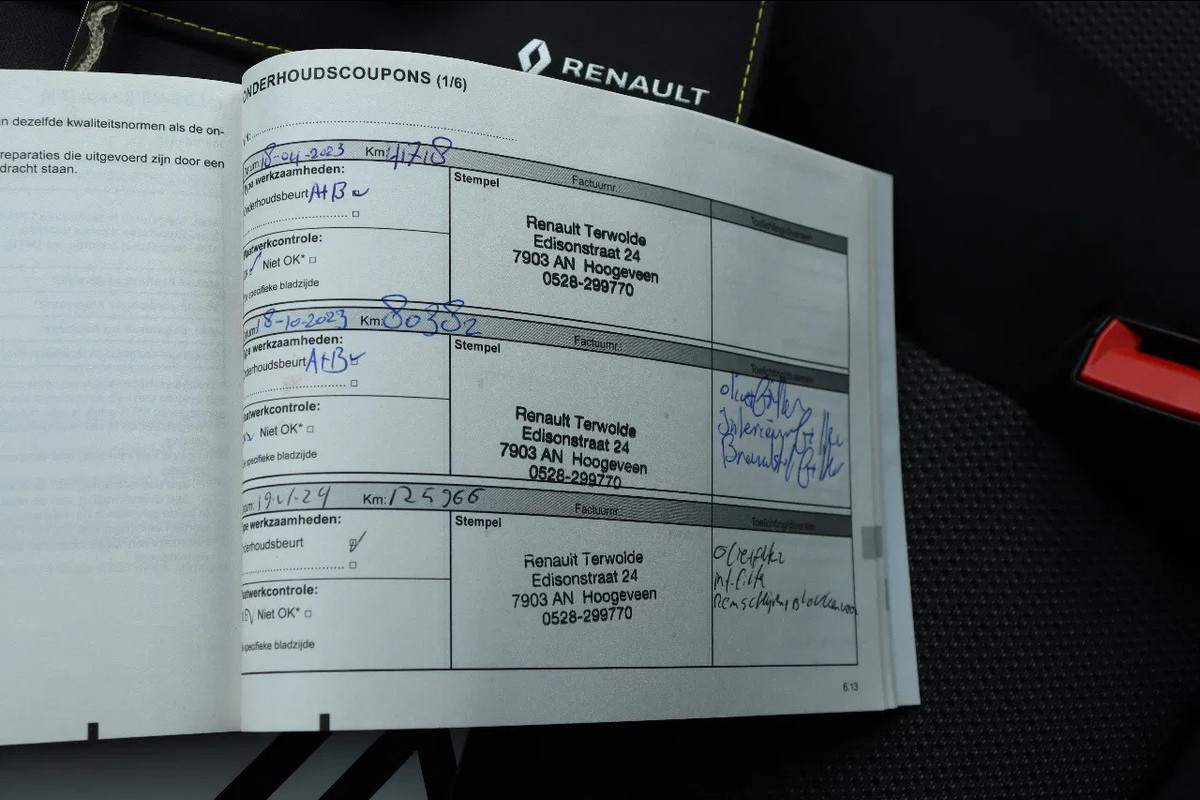 RENAULT
n dezelfde kwaliteitsnormen als de on-
reparaties die uitgevoerd zijn door een
dracht staan.
ONDERHOUDSCOUPONS (1/6)
18-04-2023 Km: 41718
Stempel Factuurnr.:
werkzaamheden:
Onderhoudsbeurt A+B
Renault Terwolde
Edisonstraat 24
7903 AN Hoogeveen
0528-299770
Plaatwerkcontrole:
Niet OK*
specifieke bladzijde
18-10-2023 Km: 80382
Stempel Factuurnr.:
werkzaamheden:
nderhoudsbeurt A+B
Renault Terwolde
Edisonstraat 24
7903 AN Hoogeveen
0528-299770
aatwerkcontrole:
Niet OK*
specifieke bladzijde
oliefilter
Interieurfilter
Brandstoffilter
Km: 125966
Stempel Factuurnr.:
pe werkzaamheden:
derhoudsbeurt
Renault Terwolde
Edisonstraat 24
7903 AN Hoogeveen
0528-299770
aatwerkcontrole:
Niet OK*
specifieke bladzijde
oliefilter
int-filter
6.13